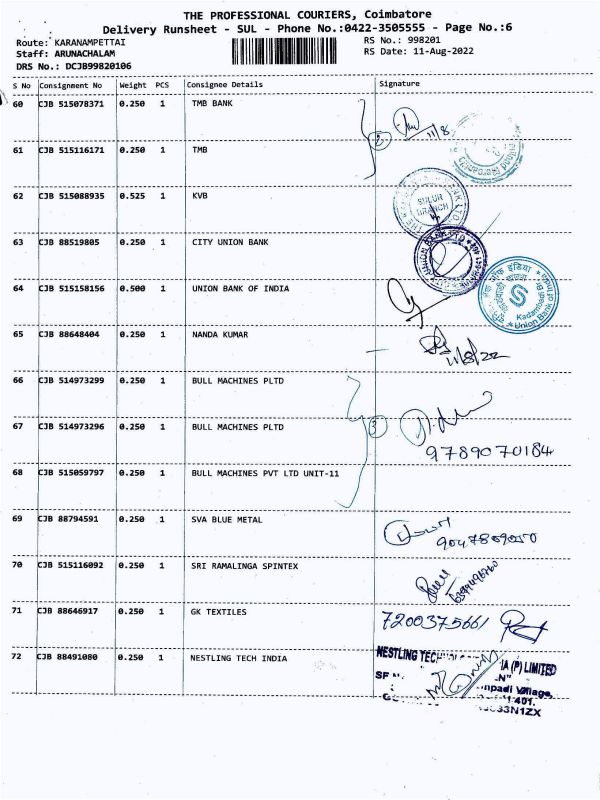 THE PROFESSIONAL COURIERS, Coimbatore
Delivery Runsheet - SUL - Phone No.:0422-3505555 - Page No.:6
Route: KARANAMPETTAI
RS No.: 998201
Staff: ARUNACHALAM
RS Date: 11-Aug-2022
DRS No.: DCJB99820106
S No Consignment No Weight PCS Consignee Details Signature
60 CJB 515078371 0.250 1 TMB BANK
2 11/8
61 CJB 515116171 0.250 1 TMB
62 CJB 515088935 0.525 1 KVB
SULUR
BRANCH
63 CJB 88519805 0.250 1 CITY UNION BANK
64 CJB 515158156 0.500 1 UNION BANK OF INDIA
Union Bank of India
65 CJB 88648404 0.250 1 NANDA KUMAR
11/8/22
66 CJB 514973299 0.250 1 BULL MACHINES PLTD
67 CJB 514973296 0.250 1 BULL MACHINES PLTD
3
9789070184
68 CJB 515059797 0.250 1 BULL MACHINES PVT LTD UNIT-11
69 CJB 88794591 0.250 1 SVA BLUE METAL
70 CJB 515116092 0.250 1 SRI RAMALINGA SPINTEX
71 CJB 88646917 0.250 1 GK TEXTILES
7200375661
72 CJB 88491080 0.250 1 NESTLING TECH INDIA
NESTLING TECH (P) LIMITED
Village,